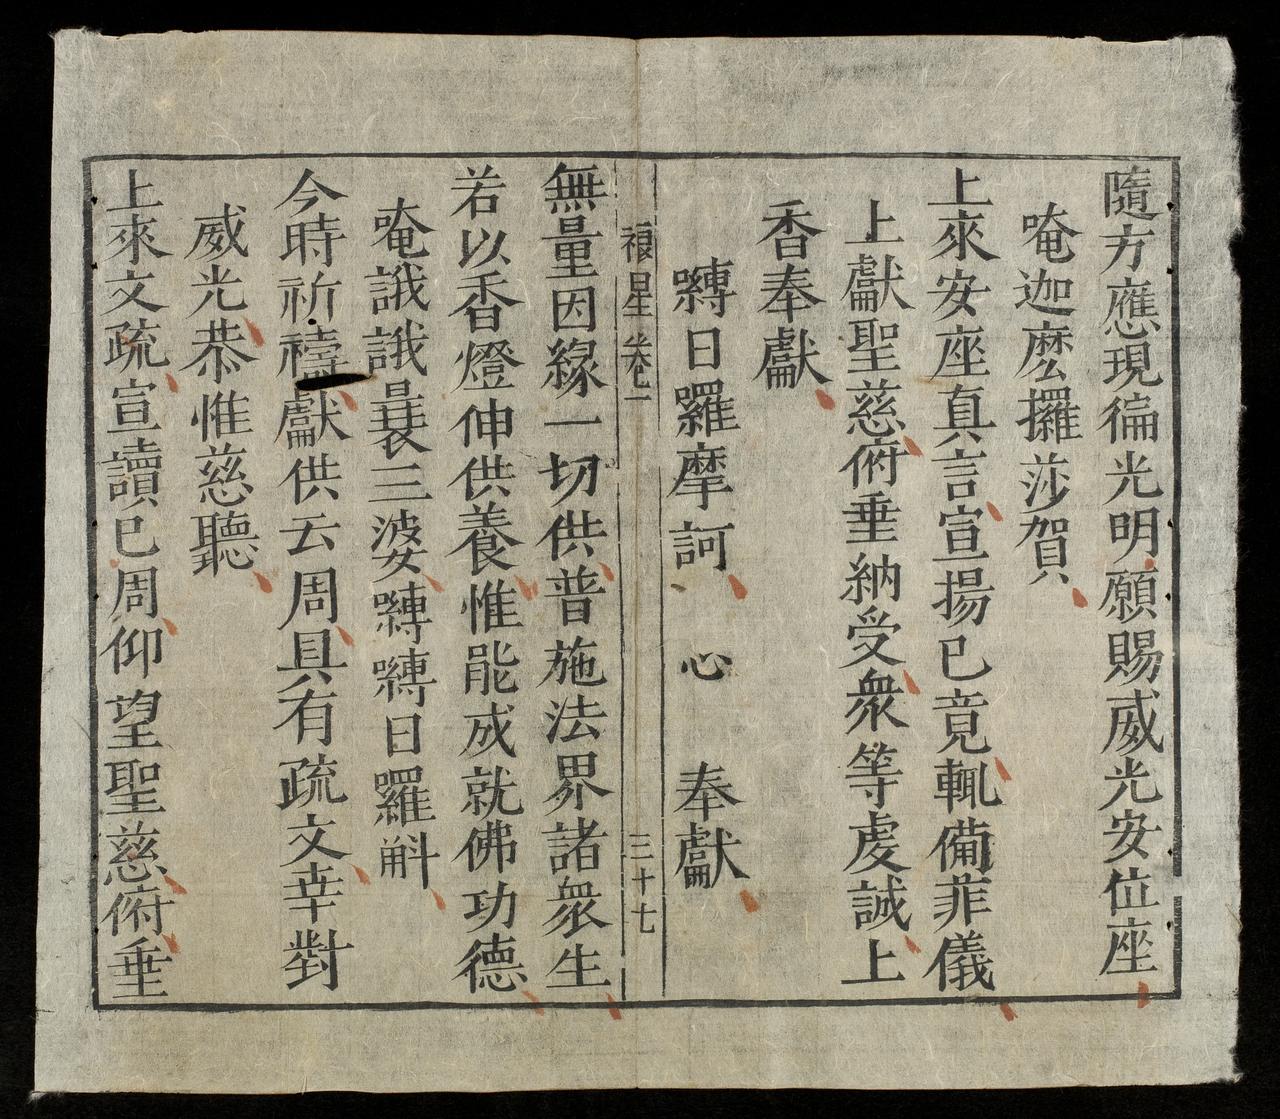 隨方應現徧光明願賜威光安位座
唵迦麽攞莎賀
上來安座真言宣揚已竟輒備菲儀
上獻聖慈俯垂納受衆等虔誠上
香奉獻
嚩日囉摩訶 心 奉獻
禄星 卷一 三十七
無量因緣一切供普施法界諸衆生
若以香燈伸供養惟能成就佛功德
唵誐誐曩三婆嚩嚩日囉斛
今時祈禱獻供云周具有疏文幸對
威光恭惟慈聽
上來文疏宣讀已周仰望聖慈俯垂